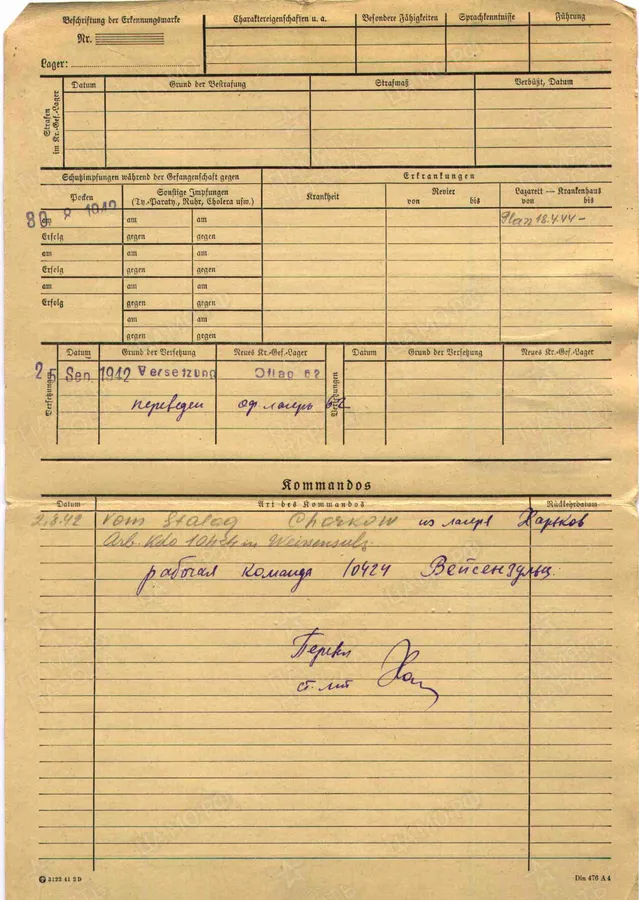 Beschriftung der Erkennungsmarke
Nr.
Lager:
Charaktereigenschaften u. a.
Besondere Fähigkeiten
Sprachkenntnisse
Führung
Strafen im Kr.-Gef.-Lager
Datum
Grund der Bestrafung
Strafmaß
Verbüßt, Datum
Schutzimpfungen während der Gefangenschaft gegen
Erkrankungen
Pocken
Sonstige Impfungen
(Ty.-Paraty., Ruhr, Cholera usw.)
Krankheit
Revier
von bis
Lazarett — Krankenhaus
von bis
am 1942 am am
18.4.44 -
Erfolg gegen gegen
am am am
Erfolg gegen gegen
am am am
Erfolg gegen gegen
am am
gegen gegen
Versetzungen
Datum
Grund der Versetzung
Neues Kr.-Gef.-Lager
Versetzungen
Datum
Grund der Versetzung
Neues Kr.-Gef.-Lager
25 Sep. 1942 Versetzung Oflag 62
переведен оф лагерь 62
Kommandos
Datum
Art des Kommandos
Rückkehrdatum
2.8.42 Vom Stalag Charkow из лагеря Харьков
Arb. Kdo 10424 in
рабочая команда 10424 Вейсензульц.
Перевел
ст. лт
3123 41 2 D
Din 476 A 4